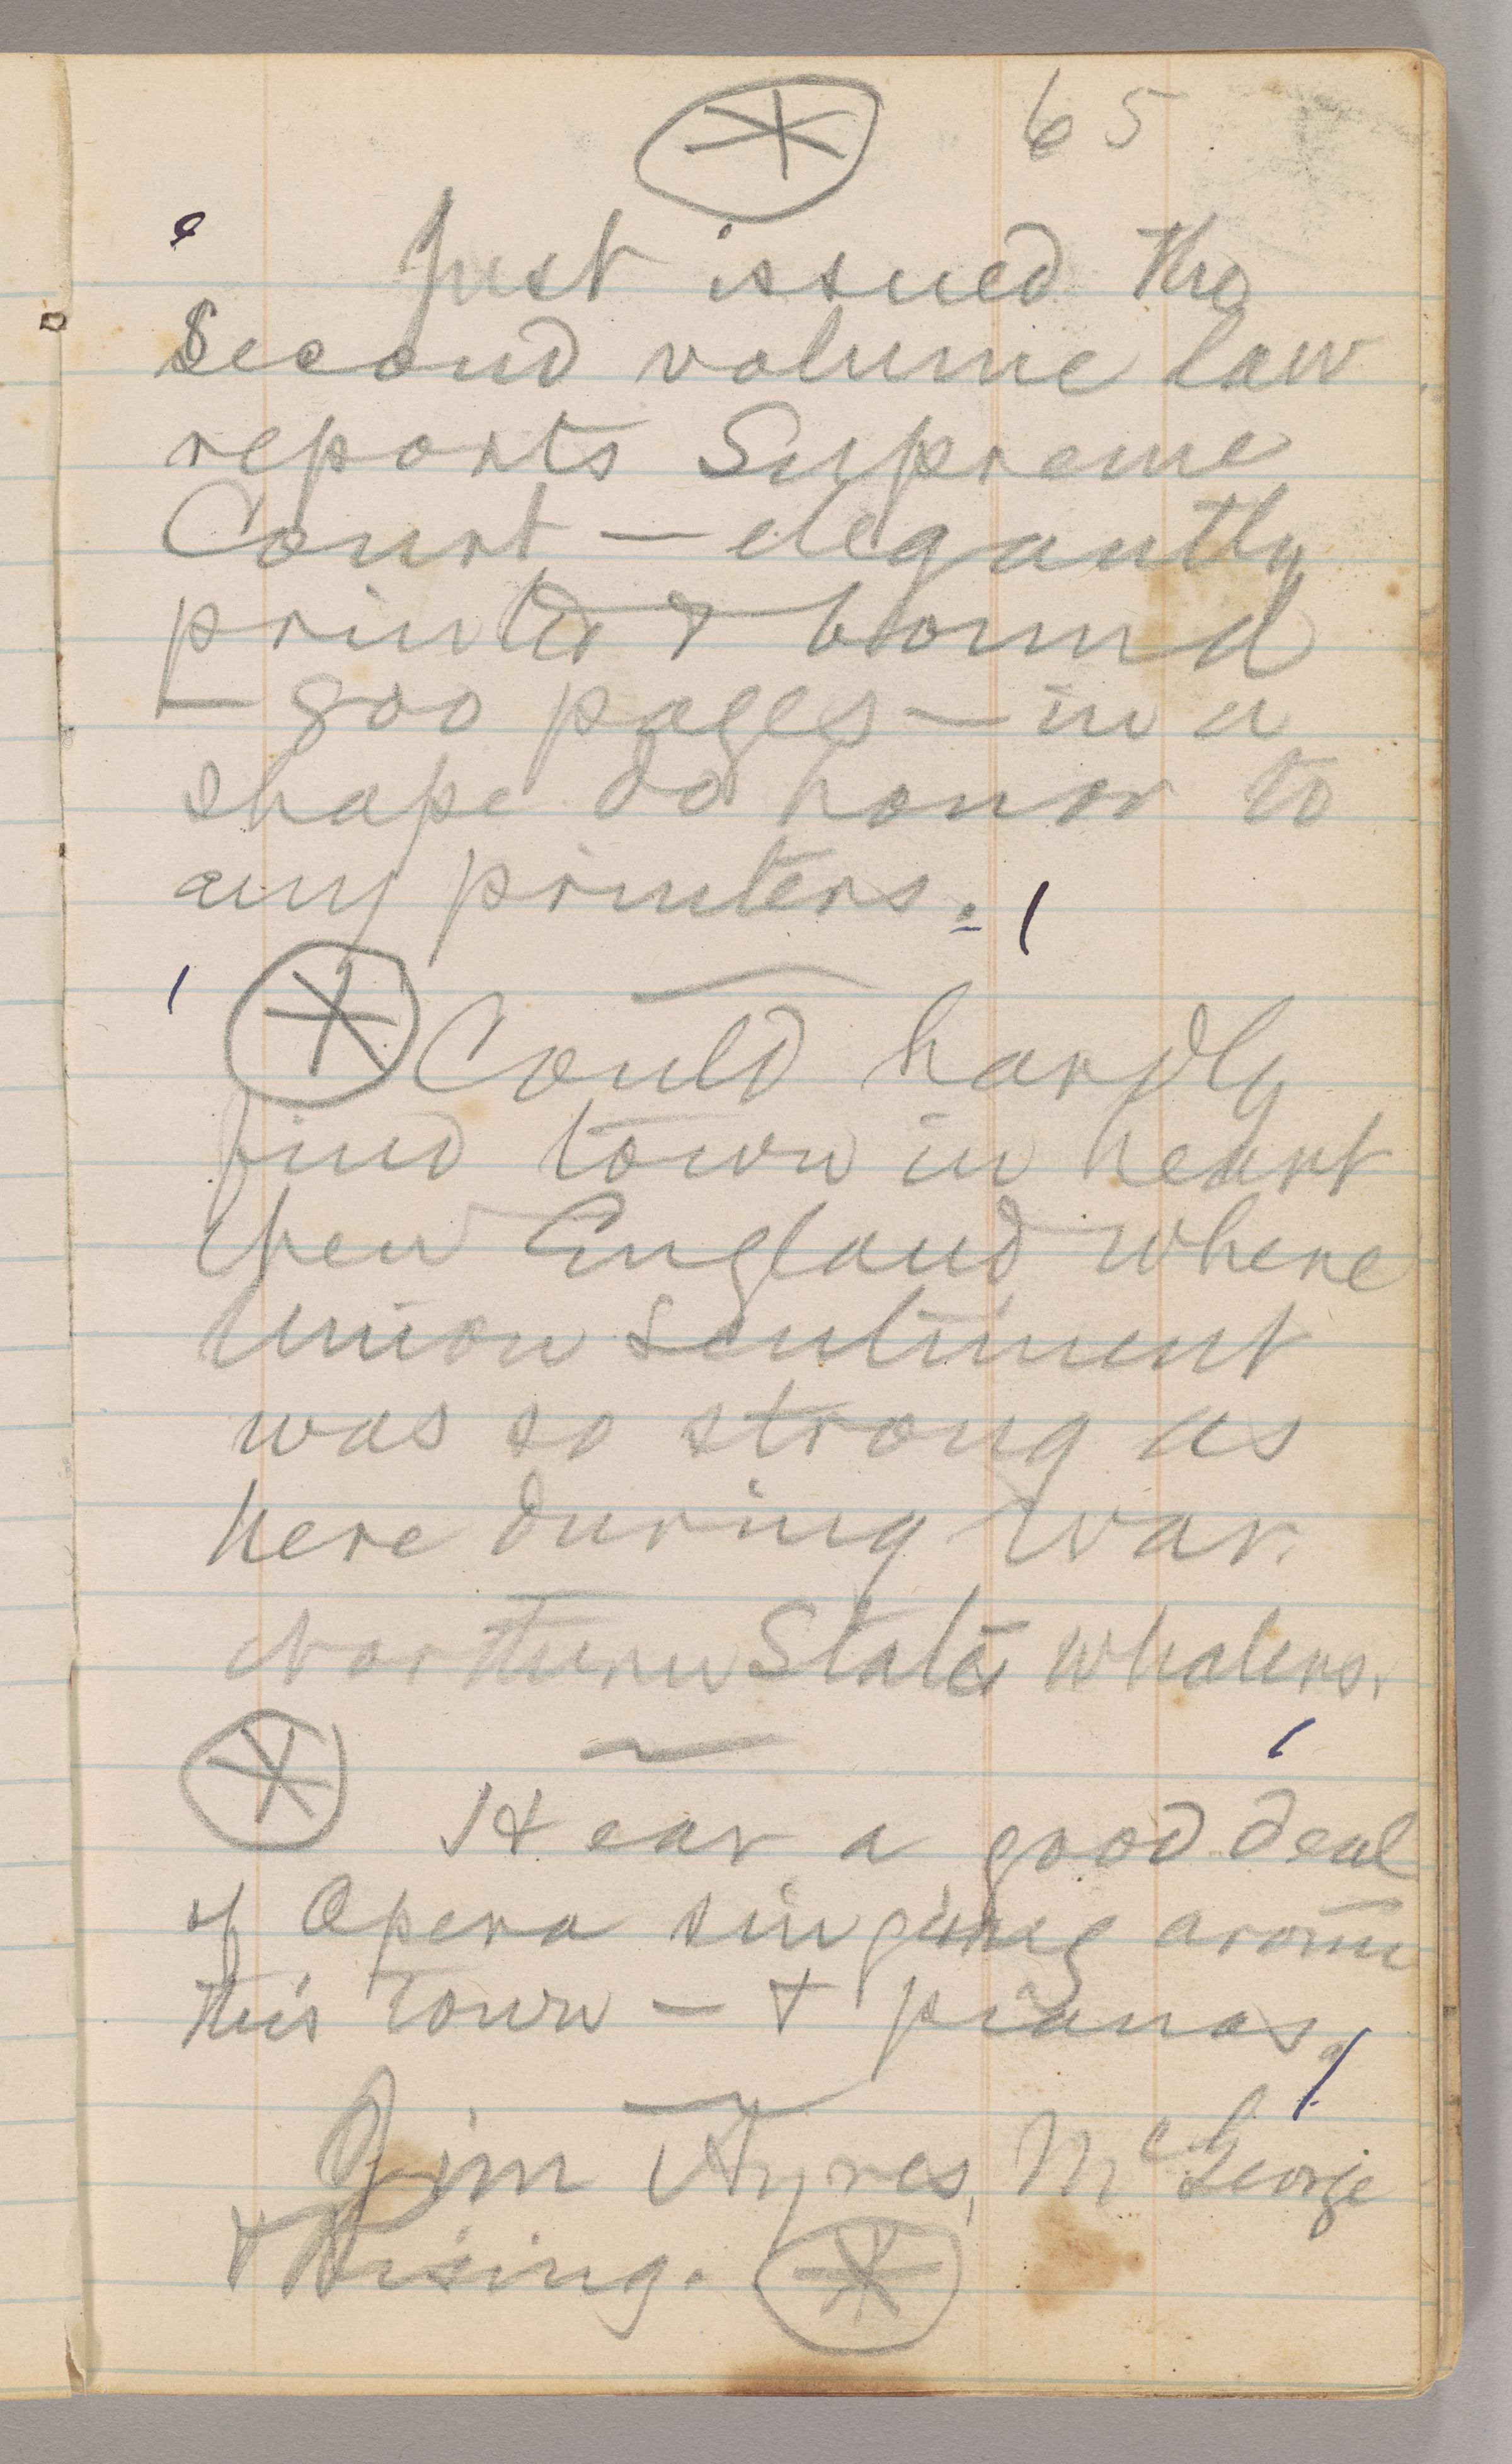 65
Just issued the
Second volume law
reports Supreme
Court — elegantly
printed & bound
— 800 pages — in a
shape do honor to
any printers.
Could hardly
find town in heart
New England where
Union sentiment
was so strong as
here during war.
Northern States whalers.
Hear a good deal
of Opera singing around
this town — & pianos.
Jim Ayres, McGeorge
& Rising.